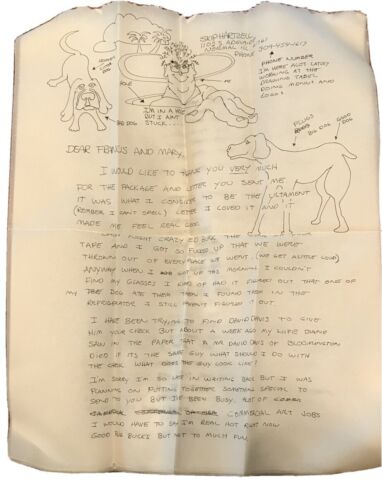 SKIP HARTZELL
1102 S ADELAIDE
NORMAL IL
PHONE
309-454-1617
PHONE NUMBER
I'M HERE ALOT LATELY
WORKING AT THE
DRAWING TABEL
DOING MENUS AND
LOGOS
HOLE
ME
I'M IN A HOLE
BUT I AINT
STUCK
BIG DOG
BIG DOG
GOOD
DOG
DEAR FRANCIS AND MARY,
I WOULD LIKE TO THANK YOU VERY MUCH
FOR THE PACKAGE AND LETTER YOU SENT ME
IT WAS WHAT I CONSITER TO BE THE ULTAMENT
(REMBER I CANT SPELL) LETTER I LOVED IT AND IT
MADE ME FEEL REAL GOOD
LAST NIGHT CRAZY ED BUG THE
TAPE AND I GOT SO FUCKED UP THAT WE WERE
THROWN OUT OF EVERY PLACE WE WENT. (WE GET A LITTLE LOUD)
ANYWAY WHEN I GOT UP THIS MORNING I COULDN'T
FIND MY GLASSES I KIND OF HAD IT FIGURED OUT THAT ONE OF
MY DOG ATE THEM THEN I FOUND THEM IN THE
REFRIGERATOR I STILL HAVENT FIGURED IT OUT.
I HAVE BEEN TRYING TO FIND DAVID DAVIS TO GIVE
HIM YOUR CHECK BUT ABOUT A WEEK AGO MY WIFE DIANE
SAW IN THE PAPER THAT A MR DAVID DAVIS OF BLOOMINGTON
DIED IF ITS THE SAME GUY WHAT SHOULD I DO WITH
THE CHEK WHAT DOES THE GUY LOOK LIKE?
I'M SORRY I'M SO LATE IN WRITING BACK BUT I WAS
PLANNING ON PUTTING TOGETHER SOMETHING SPECIAL TO
SEND TO YOU BUT I'VE BEEN BUSY. ALOT OF
COMMERCIAL ART JOBS
I WOULD HAVE TO SAY I'M REAL HOT RIGHT NOW
GOOD BIG BUCKS BUT NOT TO MUCH FUN